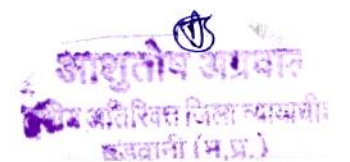 आशुतोष अग्रवाल
अतिरिक्त जिला न्यायाधीश
बड़वानी (म.प्र.)